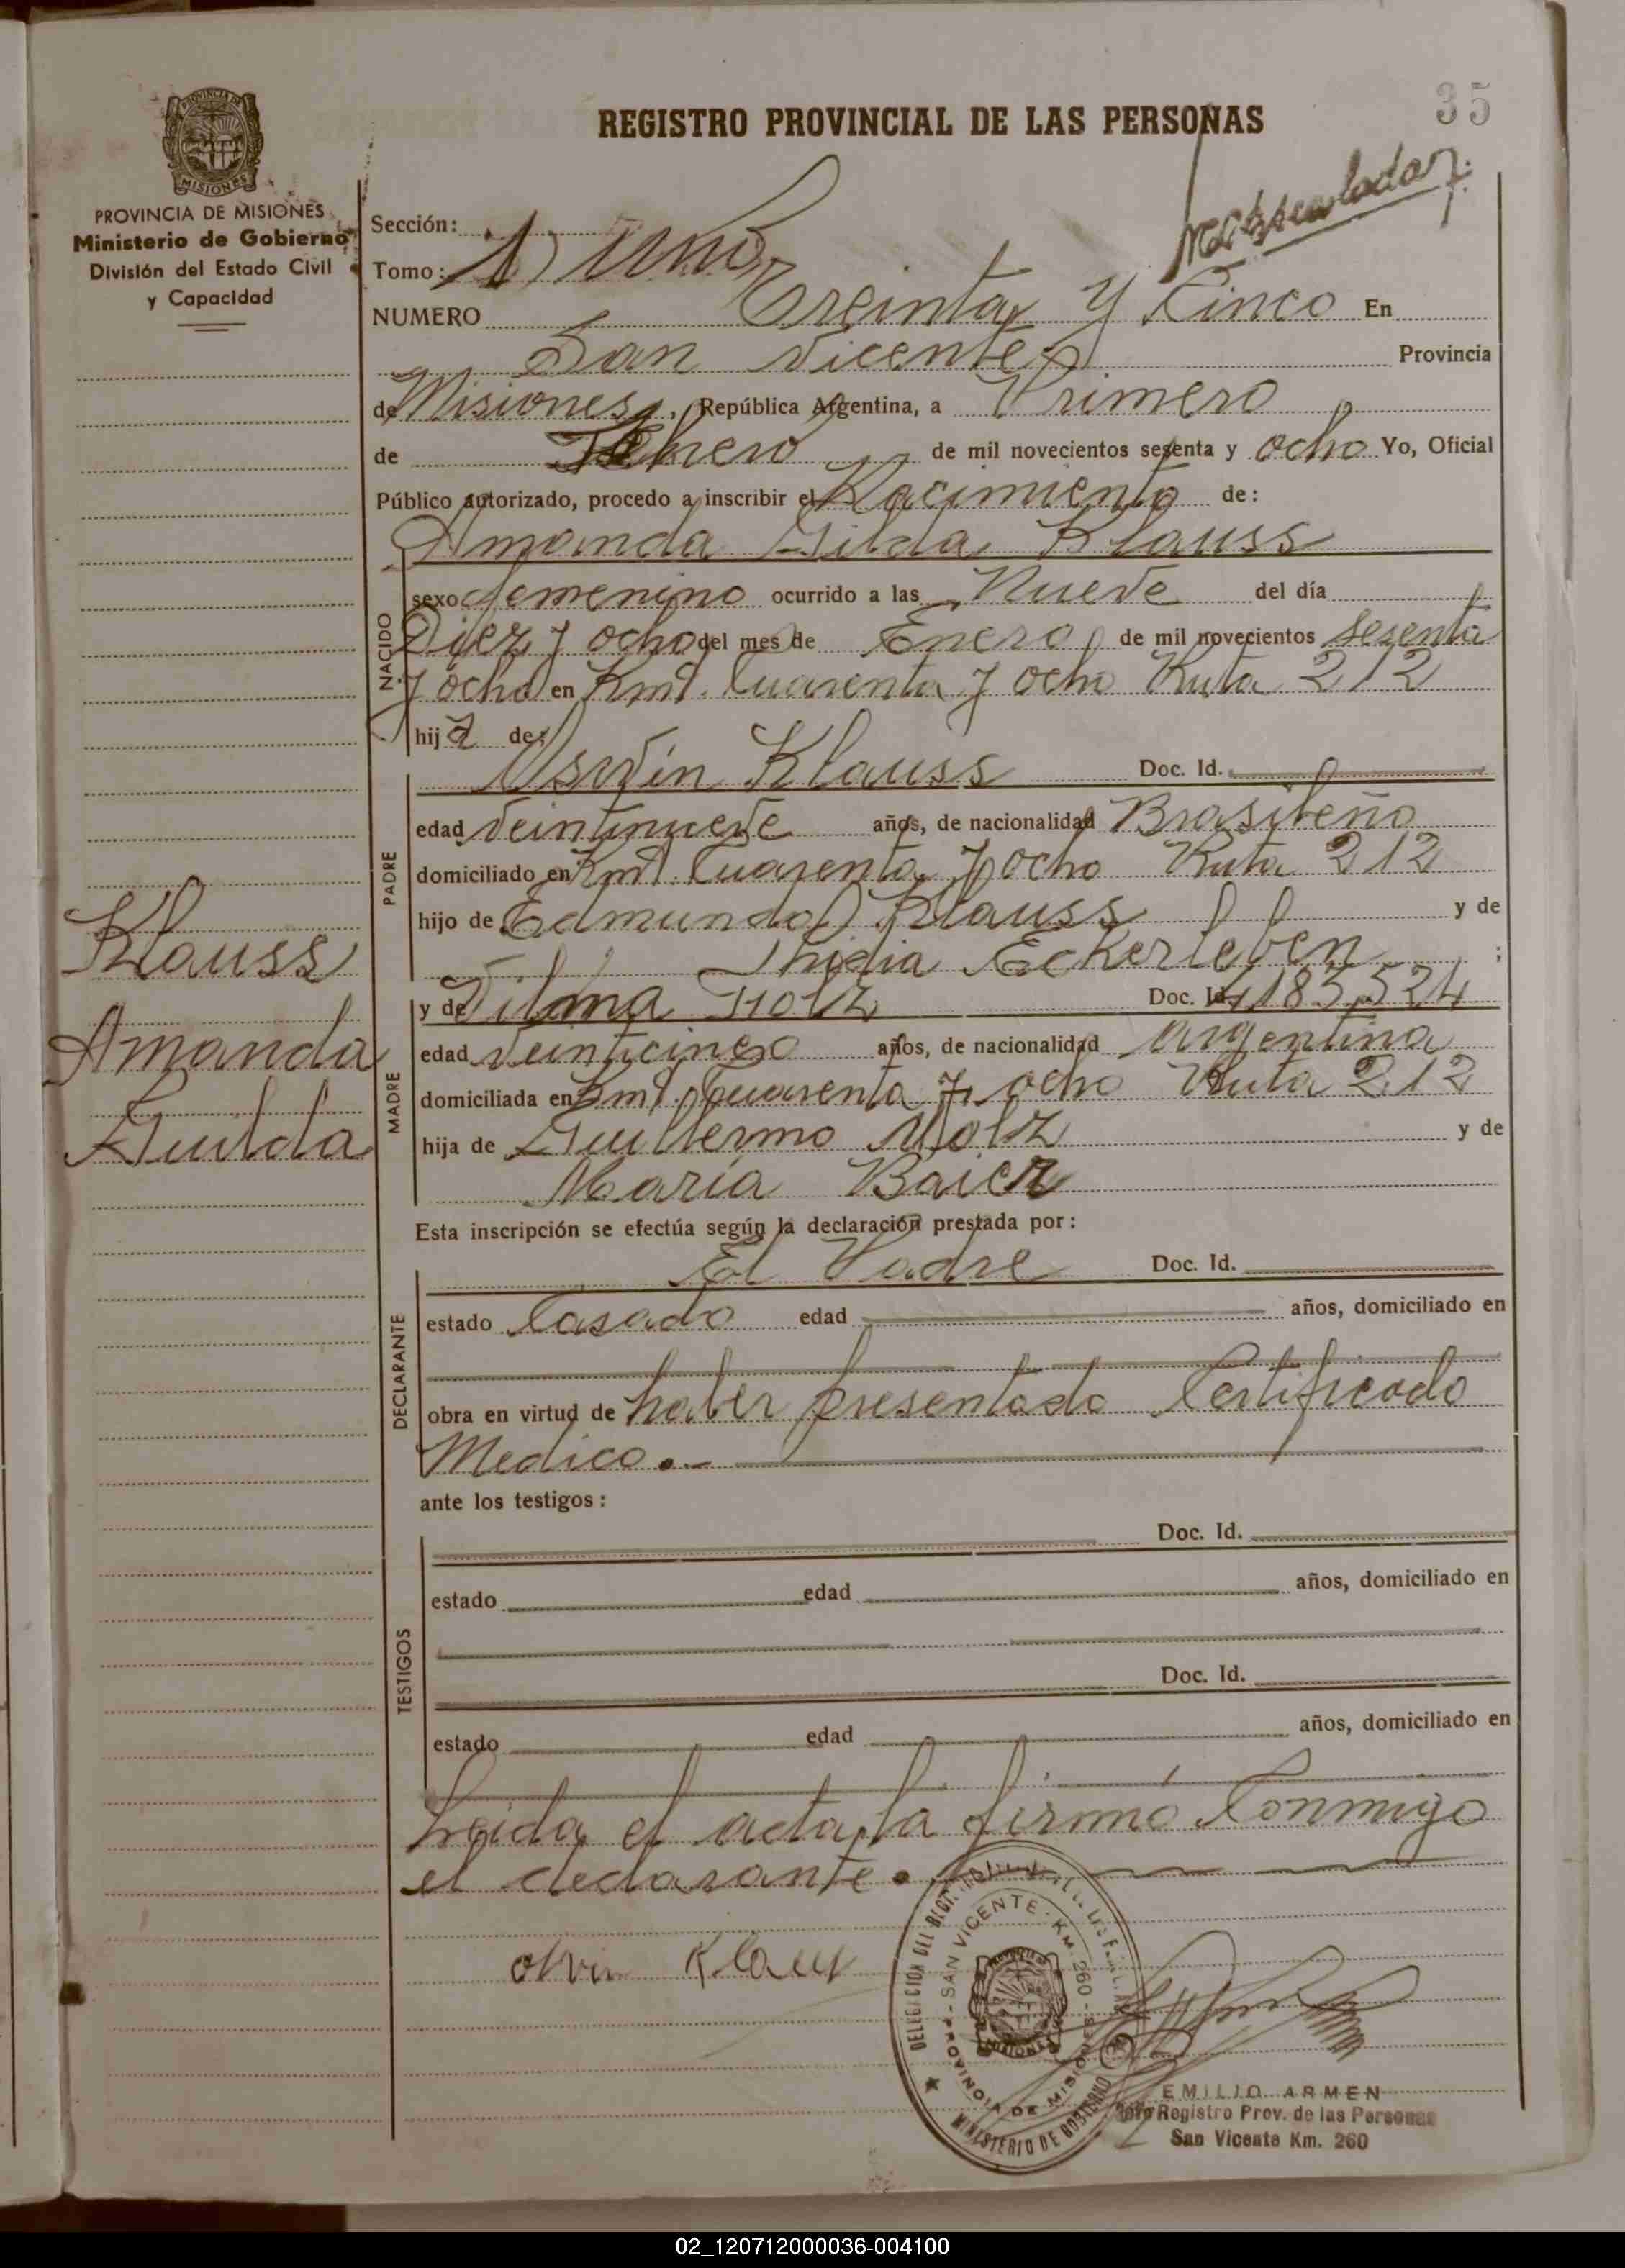 35
REGISTRO PROVINCIAL DE LAS PERSONAS
Matriculada
PROVINCIA DE MISIONES
Ministerio de Gobierno
División del Estado Civil
y Capacidad
Sección:
Tomo: 1) Uno
NUMERO Treinta y Cinco En
San Vicente Provincia
de Misiones, República Argentina, a Primero
de Febrero de mil novecientos sesenta y ocho Yo, Oficial
Público autorizado, procedo a inscribir el Nacimiento de:
Amanda Gilda Klauss
NACIDO
sexo femenino ocurrido a las Nueve del día
Diez y ocho del mes de Enero de mil novecientos sesenta
y ocho en Kmt. Cuarenta y ocho Ruta 212
hija de:
Osvin Klauss Doc. Id.
PADRE
edad Veintinueve años, de nacionalidad Brasileño
domiciliado en Kmt. Cuarenta y ocho Ruta 212
hijo de Edmundo Klauss y de
Eckerleben ;
MADRE
y de Vilma Holz Doc. Id. 4183,524
edad Veinticinco años, de nacionalidad Argentina
domiciliada en Kmt. Cuarenta y ocho Ruta 212
hija de Guillermo Holz y de
María Baier
Klauss
Amanda
Guilda
Esta inscripción se efectúa según la declaración prestada por:
El Padre Doc. Id.
DECLARANTE
estado Casado edad años, domiciliado en
obra en virtud de haber presentado Certificado
Medico.-
ante los testigos:
TESTIGOS
Doc. Id.
estado edad años, domiciliado en
Doc. Id.
estado edad años, domiciliado en
Leida el acta, la firmó Conmigo
el declarante.
olvin Klaus
SAN VICENTE - KM. 260 -
PROVINCIA DE MISIONES
MINISTERIO DE GOBIERNO
EMILIO ARMEN
Registro Prov. de las Personas
San Vicente Km. 260
02_120712000036-004100